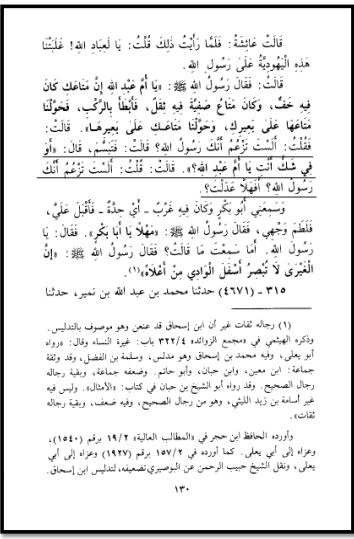 قَالَتْ عَائِشَةُ: فَلَمَّا رَأَيْتُ ذٰلِكَ قُلْتُ: يَا لَعِبَادِ اللهِ! غَلَبَتْنَا
هَذِهِ الْيَهُودِيَّةُ عَلَىٰ رَسُولِ اللهِ.
قَالَتْ: فَقَالَ رَسُولُ اللهِ ﷺ: «يَا أُمَّ عَبْدِ اللهِ إِنَّ مَتَاعَكِ كَانَ
فِيهِ خِفٌّ، وَكَانَ مَتَاعُ صَفِيَّةَ فِيهِ ثِقَلٌ، فَأَبْطَأَ بِالرَّكْبِ، فَحَوَّلْنَا
مَتَاعَهَا عَلَىٰ بَعِيرِكِ، وَحَوَّلْنَا مَتَاعَكِ عَلَىٰ بَعِيرِهَا». قَالَتْ:
فَقُلْتُ: أَلَسْتَ تَزْعُمُ أَنَّكَ رَسُولُ اللهِ؟ قَالَتْ: فَتَبَسَّمَ، قَالَ: «أَوَ
فِي شَكٍّ أَنْتِ يَا أُمَّ عَبْدِ اللهِ؟». قَالَتْ: قُلْتُ: أَلَسْتَ تَزْعُمُ أَنَّكَ
رَسُولُ اللهِ؟ أَفَهَلَّا عَدَلْتَ؟.
وَسَمِعَنِي أَبُو بَكْرٍ وَكَانَ فِيهِ غَرْبٌ ـ أَيْ حِدَّةٌ ـ فَأَقْبَلَ عَلَيَّ،
فَلَطَمَ وَجْهِي، فَقَالَ رَسُولُ اللهِ ﷺ: «مَهْلًا يَا أَبَا بَكْرٍ». فَقَالَ: يَا
رَسُولَ اللهِ. أَمَا سَمِعْتَ مَا قَالَتْ؟ فَقَالَ رَسُولُ اللهِ ﷺ: «إِنَّ
الْغَيْرَىٰ لَا تُبْصِرُ أَسْفَلَ الْوَادِي مِنْ أَعْلَاهُ»(١).
٣١٥ ـ (٤٦٧١) حدثنا محمد بن عبد الله بن نمير، حدثنا
(١) رجاله ثقات غير أن ابن إسحاق قد عنعن وهو موصوف بالتدليس.
وذكره الهيثمي في «مجمع الزوائد» ٣٢٢/٤ باب: غيرة النساء وقال: «رواه
أبو يعلى، وفيه محمد بن إسحاق وهو مدلس، وسلمة بن الفضل، وقد وثقه
جماعة: ابن معين، وابن حبان، وأبو حاتم. وضعفه جماعة، وبقية رجاله
رجال الصحيح. وقد رواه أبو الشيخ بن حبان في كتاب: «الأمثال». وليس فيه
غير أسامة بن زيد الليثي، وهو من رجال الصحيح، وفيه ضعف، وبقية رجاله
ثقات».
وأورده الحافظ ابن حجر في «المطالب العالية» ١٩/٢ برقم (١٥٤٠)،
وعزاه إلى أبي يعلى. كما أورده في ١٥٧/٢ برقم (١٩٢٧) وعزاه إلى أبي
يعلى، ونقل الشيخ حبيب الرحمن عن البوصيري تضعيفه، لتدليس ابن إسحاق.
١٣٠